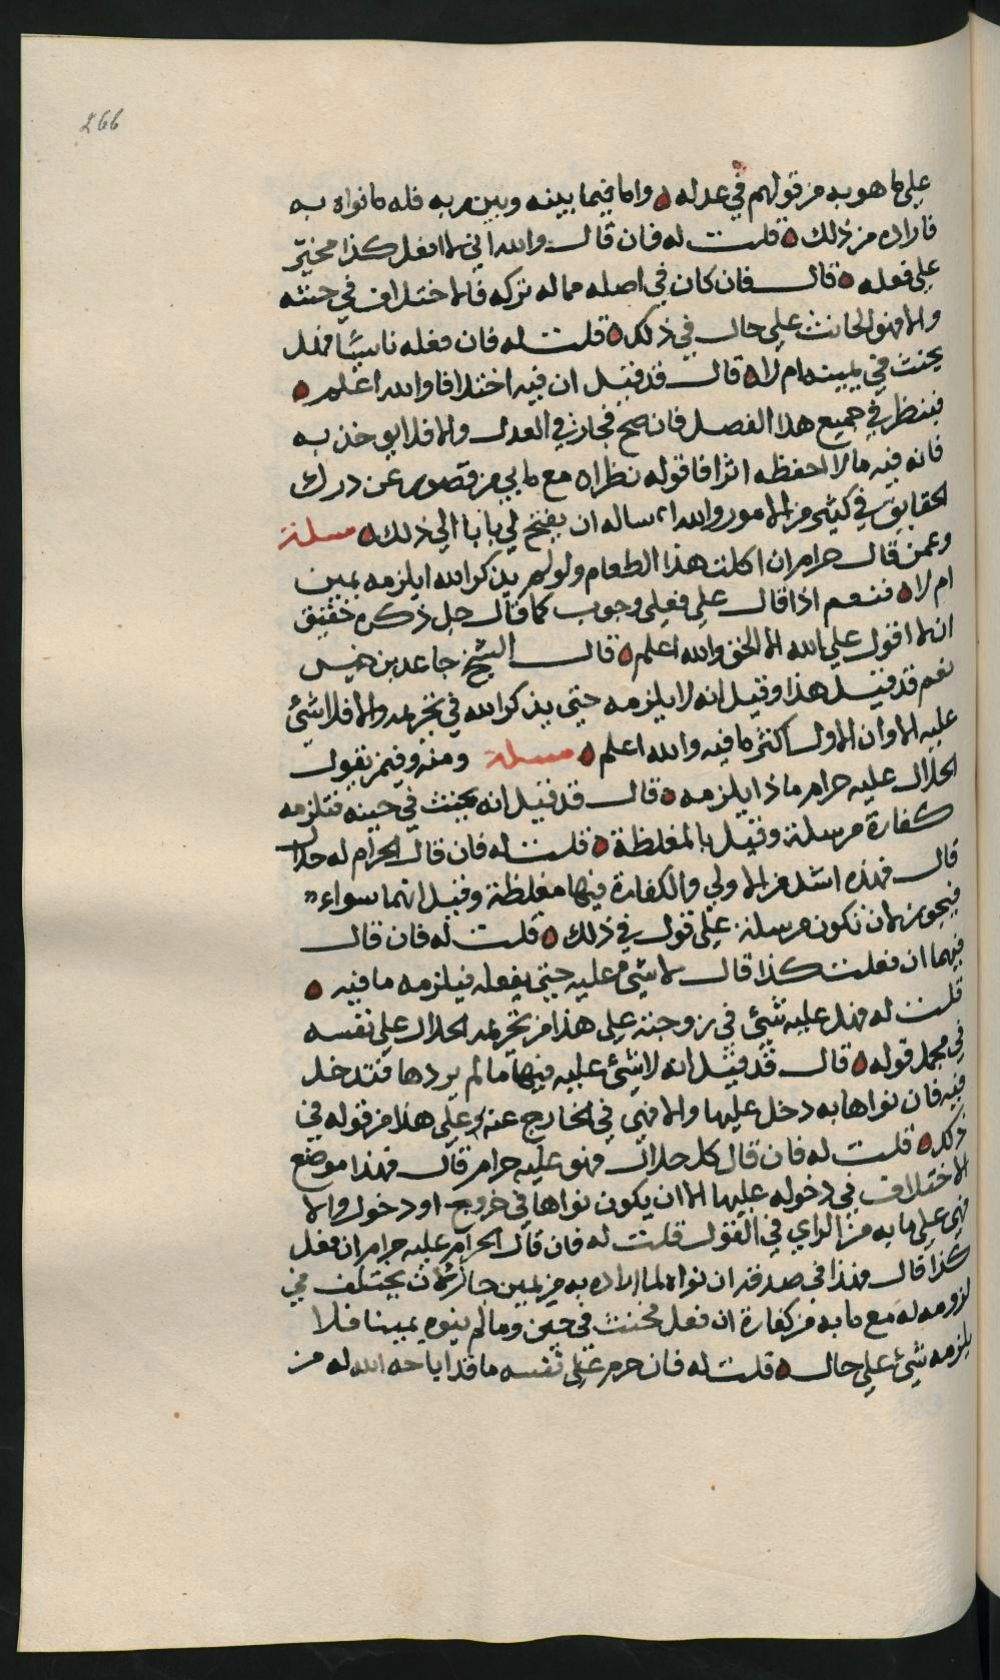 266
على ما هو به من قولهم في عدله ه واما فيما بينه وبين ربه فله ما نواه به
فاراده من ذلك ه قلت له فان قال والله اني لا افعل كذا مخيّر
على فعله ه قال فان كان في اصله مما له تركه فالاختلاف في حنثه
والا فهو الحانث على حال في ذلك ه قلت له فان فعله ناسيًا فهل
يحنث في يمينه ام لا ه قال قد قيل ان فيه اختلافا والله اعلم ه
فينظر في جميع هذا الفصل فان صح فجايز في العدل والا فلا يوخذ به
فانه فيه ما لا احفظه اثرا فاقوله نظرا ه مع ما بي من قصور عن درك
الحقايق في كثير من الامور والله اساله ان يفتح لي بابا الي ذلك ه مسلة
وعمن قال حرام ان اكلت هذا الطعام ولو لم يذكر الله ايلزمه يمين
ام لا ه فنعم اذا قال على فعلى وجوب كما قال جل ذكره حقيق
ان لا اقول على الله الا الحق والله اعلم ه قال الشيخ جاعد بن خميس
نعم قد قيل هذا وقيل انه لا يلزمه حتى يذكر الله في تحريمه والا فلا شئ
عليه الا وان الاول اكثر ما فيه والله اعلم ه مسلة ومنه وفيمن يقول
الحلال عليه حرام ماذا يلزمه ه قال قد قيل انه يحنث في حينه فتلزمه
كفارة مرسلة وقيل بالمغلظة ه قلت له فان قال الحرام له حلال
قال فهذه اشد من الاولى والكفارة فيها مغلظة وقيل انهما سواء
فيجوز لان تكون مرسلة على قول في ذلك ه قلت له فان قال
فيهما ان فعلت كذا قال لا شئ عليه حتى يفعله فيلزمه ما فيه ه
قلت له فهل عليه شئ في زوجته على هذا من تحريمه الحلال على نفسه
في مجمل قوله ه قال قد قيل انه لا شئ عليه فيها ما لم يردها فتدخل
فيه فان نواها به دخل عليها والا فهي في الخارج عنه وعلى هذا من قوله في
ذلك ه قلت له فان قال كل حلال فهو عليه حرام قال فهذا موضع
الاختلاف في دخوله عليها الا ان يكون نواها في خروج او دخول والا
فهي على ما به من الراي في القول قلت له فان قال الحرام عليه حرام ان فعل
كذا قال فهذا في صدقه ان نواه لما اراده به من يمين جاز لان يختلف في
لزومه له مع ما به من كفارة ان فعل فحنث في حين وما لم ينوه يمينا فلا
يلزمه شئ على حال ه قلت له فان حرم على نفسه ما قد اباحه الله له من